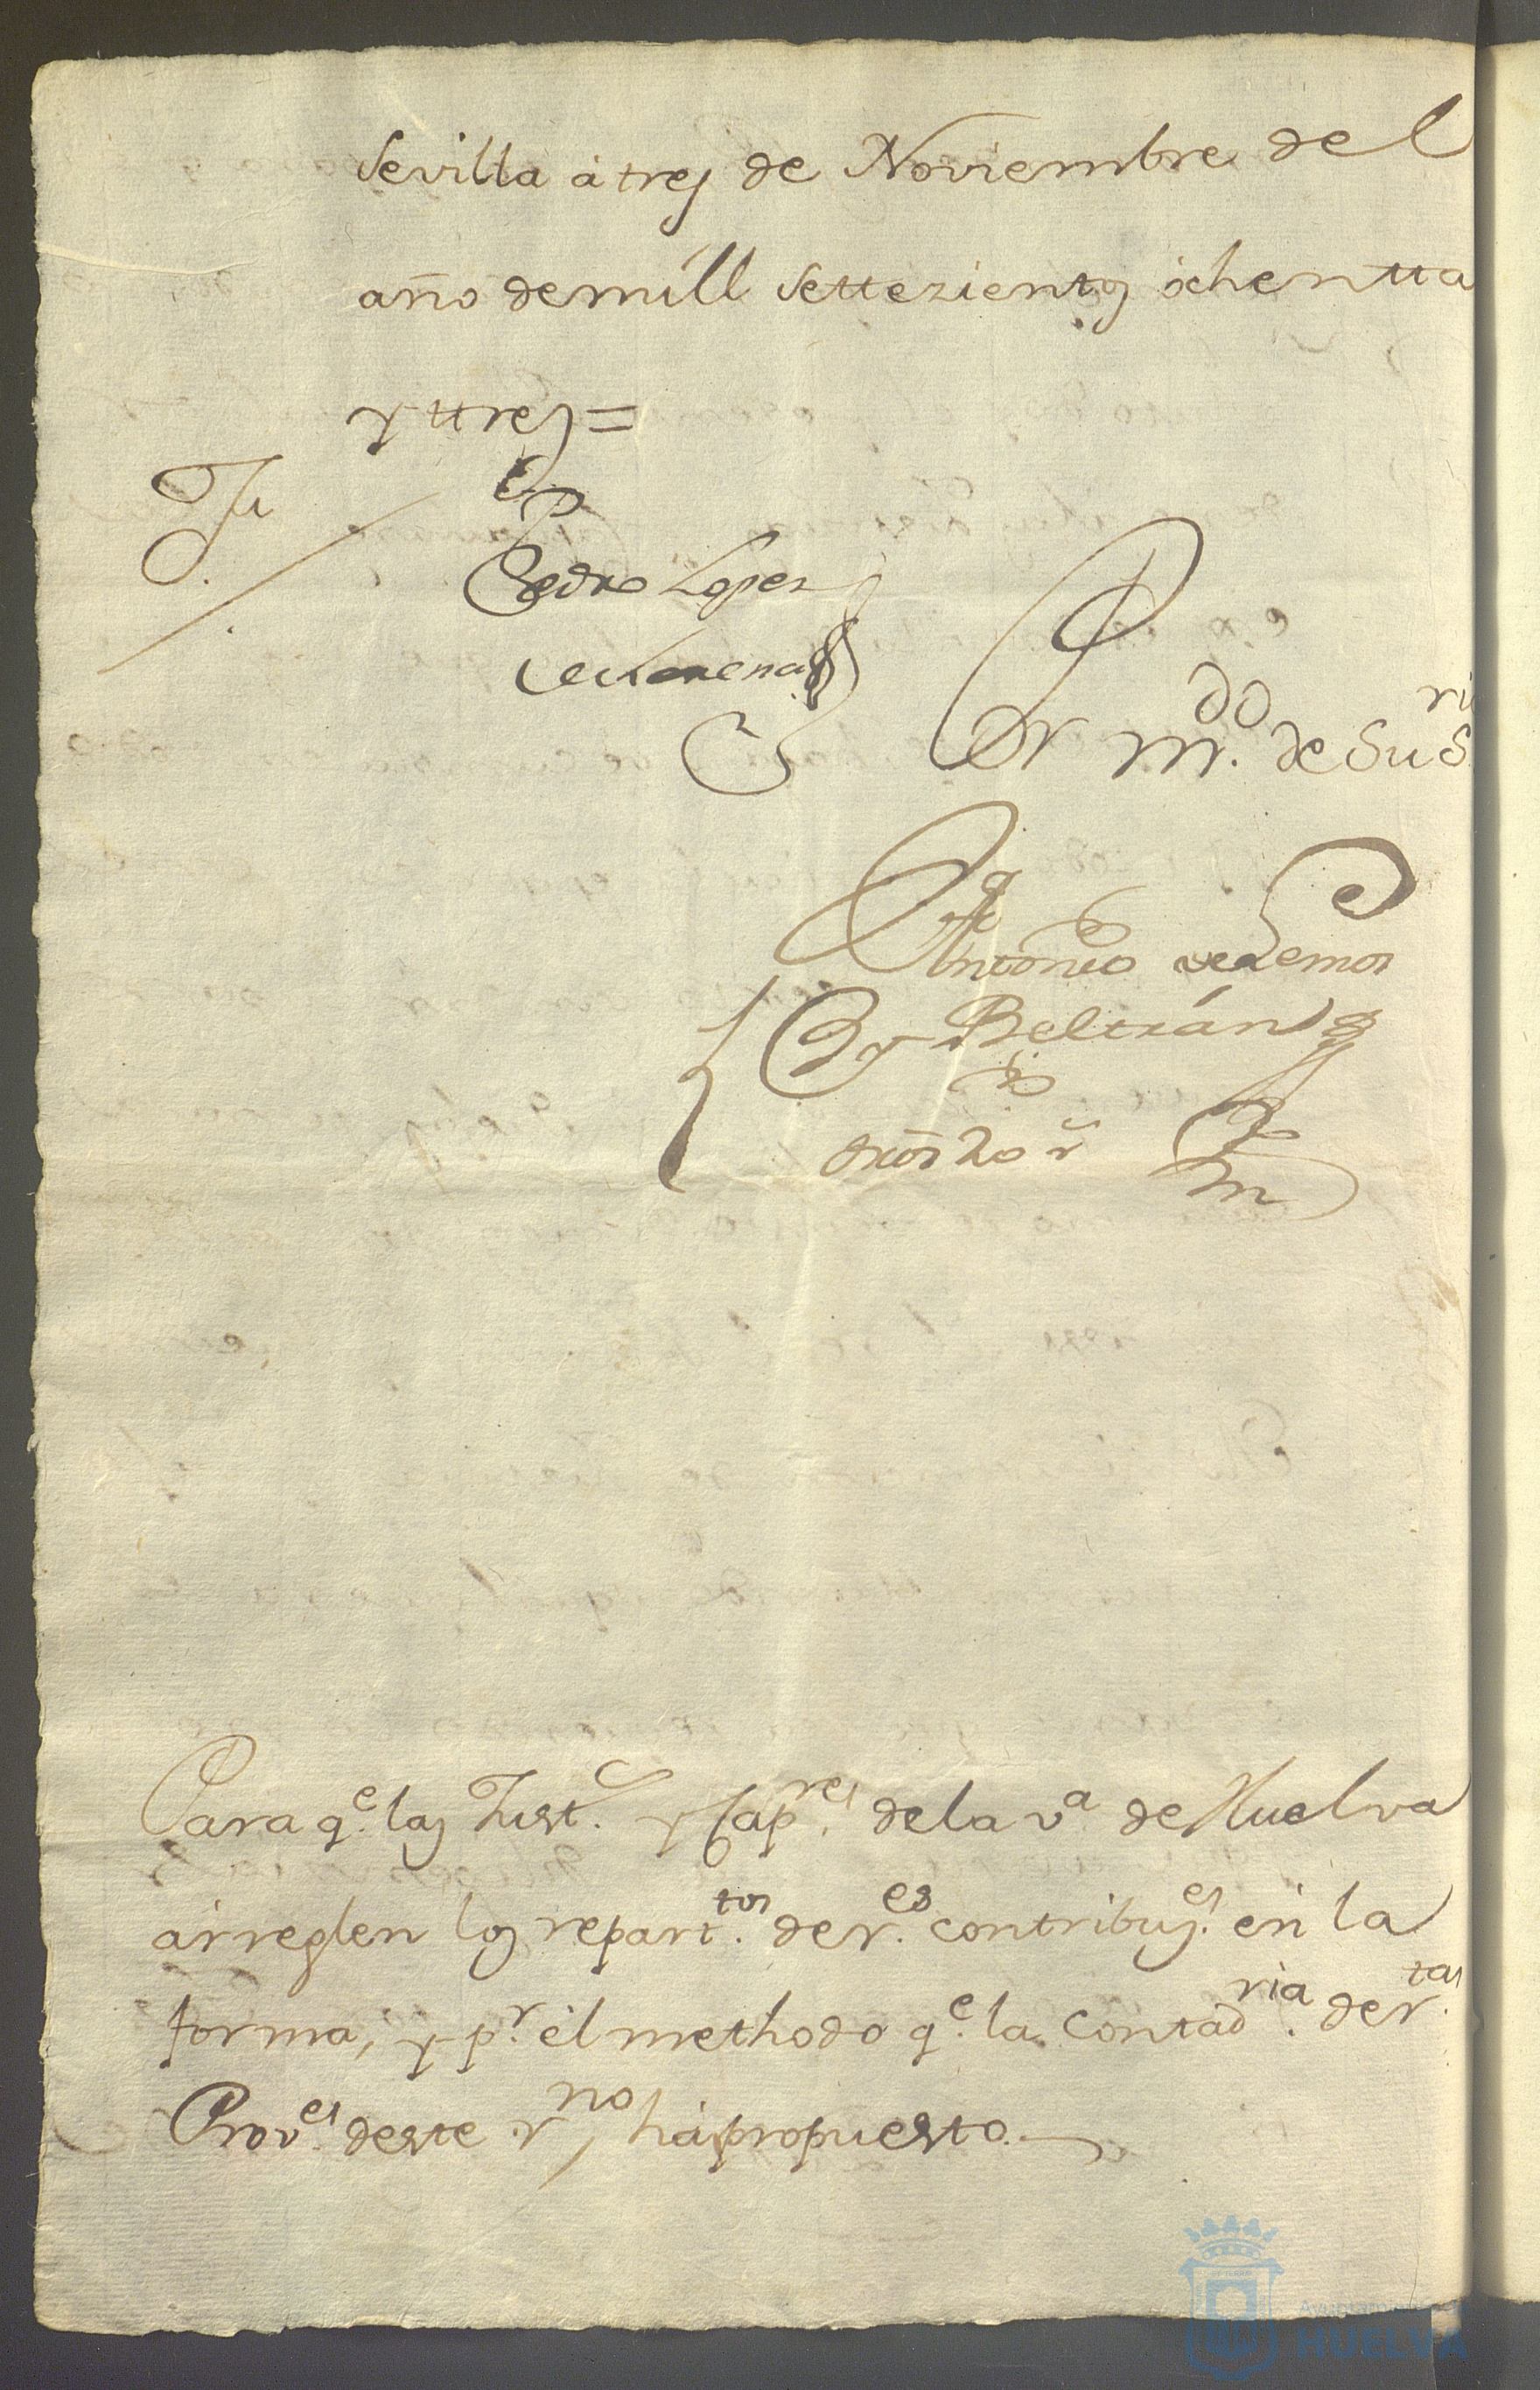 Sevilla á tres de Noviembre del
año de mill settezientos óchentta
y ttres=
Dn
Pedro Lopez
de Lerena
Pr mdo. de Su Sria
Antonio de Lemos
y Beltrán
Para qe. las Just.s y Capres. de la va de Huelva
árreglen los repartttos. de r.es contribuy.es en la
forma, y pr. el methodo qe. la Contadria. de rtas.
Proves. deste rno, há propuesto.
Ayuntamiento de
HUELVA